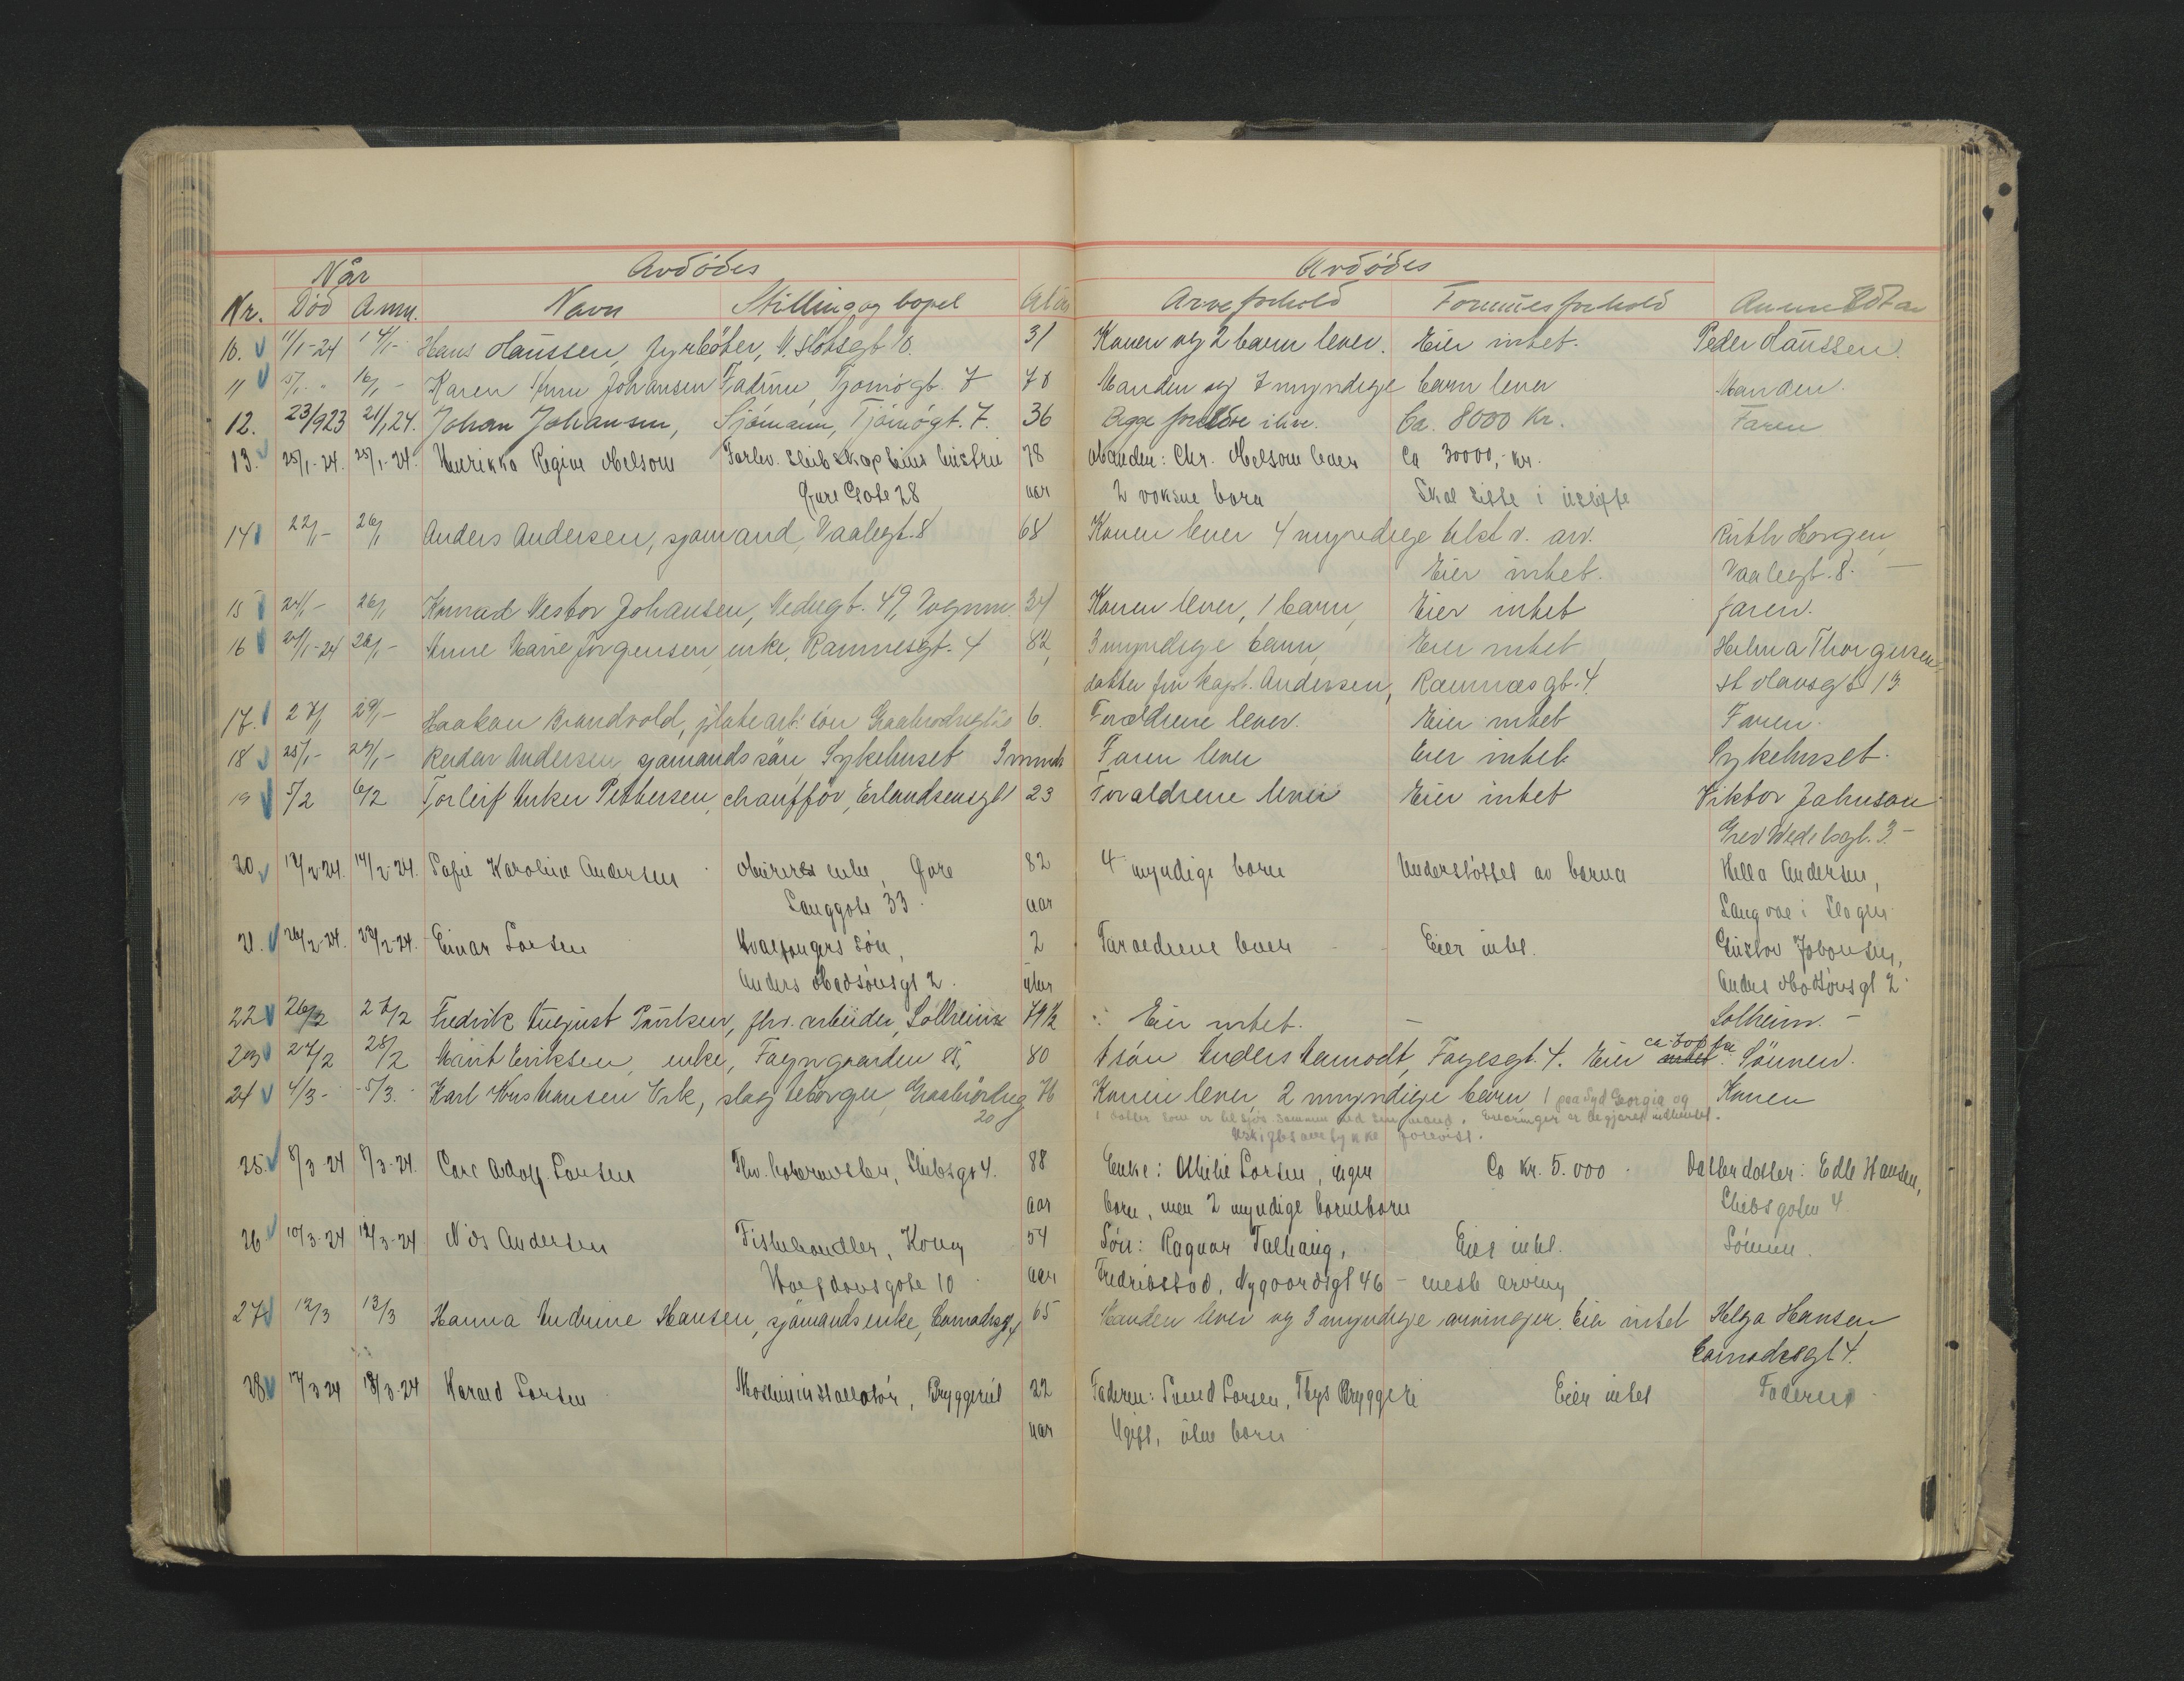 Når Avdødes Avdødes
Nr. Død Anm. Navn Stilling og bopel Alder Arveforhold Formuesforhold Anmeldt av
10. 11/1-24 14/1- Hans Hanssen, fyrbøter, N. Slotsgt 10. 31 Konen og 2 barn lever. Eier intet. Peder Hanssen.
11 15/1 " 16/1 - Karen Anne Johansen Tjømøgt. 7 78 Manden og 7 myndige barn lever Manden.
12. 23/923 21/1 24. Johan Johansen, Sjømann, Tjømøgt. 7. 36 Begge foreldre ilive. Ca. 8000 Kr. Faren
13. 25/1-24. 25/1-24. Henrikka Regine Melsom Forhv. skibskapteins hustru 78 Manden: Chr. Melsom lever Ca 30000,- kr.
Øvre Gate 28 aar 2 voksne barn Skal sitte i uskifte
14 22/1- 26/1 Anders Andersen, sjømand, Vaalegt. 8 68 Konen lever 4 myndige arv. Ruth Horgen,
Eier intet. Vaalegt. 8. -
15 24/1- 26/1 Konrad Nestor Johansen, Nedregt. 49, 34 Konen lever, 1 barn, Eier intet faren.
16 24/1-24 26/1- Anne Marie Jørgensen, enke, Ramnesgt. 4 82, 3 myndige barn, Eier intet, Helma Thorgersen,
datter fru kapt. Andersen, Ramnæsgt. 4. St. Olavsgt 13
17. 27/1 29/- Haakon Brandvold, platearb. søn 6. Forældrene lever. Eier intet Faren.
18 25/1- 29/1- Reidar Andersen sjømandssøn Sykehuset 3 mnd Faren lever Eier intet Sykehuset.
19 5/2 6/2 Torleif Anker Pettersen, chauffør, Erlandsensgt 23 Forældrene lever Eier intet Viktor Johnson
Grev Wedelsgt. 3. -
20. 12/2-24. 14/2-24. Sofie Karoline Andersen Murers enke, Øvre 82 4 myndige born Understøttet av barna Hella Andersen,
Langgate 33. aar i Slagen
21. 26/2-24. 28/2-24. Einar Larsen Hvalfangers søn, 2 Foraeldrene lever Eier intet. Gustav Johansen,
Anders Madsønsgt 2. uker Anders Madsønsgt 2.
22 26/2 27/2 Fredrik August, fhv. arbeider, Solheim 79 1/2 : Eier intet. - Solheim. -
23 27/2 28/2 Marit Eriksen, enke, Fayngaarden 85, 80 1 søn Anders Hamodt, Fayesgt. 4. Eier ca. 500 kr intet. Sønnen.
24 4/3- 5/3. Karl Hansen Vik, Graabrødreg 76 Konen lever, 2 myndige barn 1 paa Syd Georgia og Konen
20 1 datter som er til sjøs sammen med sin mand. Erklæringer er begjæret indhentet.
Uskiftebevilg ikke forevist.
25. 8/3-24 8/3-24. Carl Adolf Larsen Fhv. Skibsgt 4. 88 Enke: Larsen, ingen Ca Kr. 5.000 Datterdatter: Edle Hansen,
aar born, men 2 myndige borneborn Skibsgaten 4
26 10/3-24 12/3-24 Nils Andersen Fiskehandler, Kong 54 Søn: Ragnar Talhaug, Eier intet. Sønnen.
Haakonsgate 10 aar Fredrikstad, Nygaardsgt 46 - eneste arving
27 12/3 13/3 Hanna Andrine Hansen, sjømandsenke, Conradisgt 65 Manden lever og 3 myndige arvinger. Eier intet Helga Hansen
Conradisgt 4.
28 17/3 24 18/3-24 Harald Larsen Maskininstallatør, Bryggeriet 22 Faderen: Svend Larsen, Thys Bryggeri Eier intet Faderen
aar Ugift, uten born